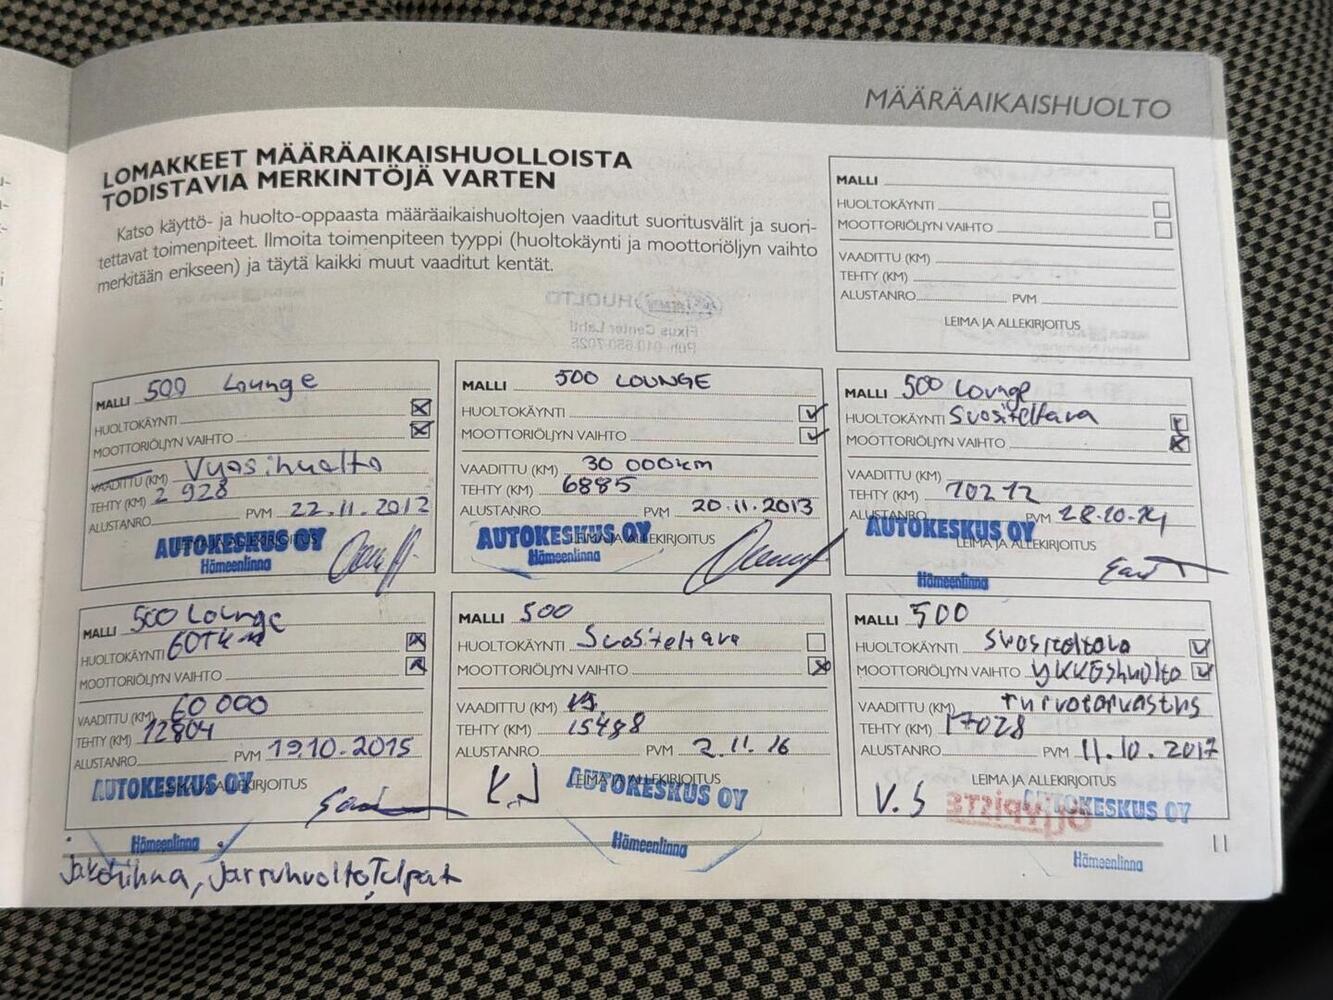 MÄÄRÄAIKAISHUOLTO
LOMAKKEET MÄÄRÄAIKAISHUOLLOISTA
TODISTAVIA MERKINTÖJÄ VARTEN
Katso käyttö- ja huolto-oppaasta määräaikaishuoltojen vaaditut suoritusvälit ja suori-
tettavat toimenpiteet. Ilmoita toimenpiteen tyyppi (huoltokäynti ja moottoriöljyn vaihto
merkitään erikseen) ja täytä kaikki muut vaaditut kentät.
MALLI
HUOLTOKÄYNTI
MOOTTORIÖLJYN VAIHTO
VAADITTU (KM)
TEHTY (KM)
ALUSTANRO PVM
LEIMA JA ALLEKIRJOITUS
MALLI 500 Lounge
HUOLTOKÄYNTI
MOOTTORIÖLJYN VAIHTO
VAADITTU (KM) Vuosihuolto
TEHTY (KM) 2 928
ALUSTANRO PVM 22.11.2012
LEIMA JA ALLEKIRJOITUS
AUTOKESKUS OY
Hämeenlinna
MALLI 500 LOUNGE
HUOLTOKÄYNTI
MOOTTORIÖLJYN VAIHTO
VAADITTU (KM) 30 000km
TEHTY (KM) 6885
ALUSTANRO PVM 20.11.2013
LEIMA JA ALLEKIRJOITUS
AUTOKESKUS OY
Hämeenlinna
MALLI 500 Lounge
HUOLTOKÄYNTI Suositeltava
MOOTTORIÖLJYN VAIHTO
VAADITTU (KM)
TEHTY (KM) 10212
ALUSTANRO PVM 28.10.14
LEIMA JA ALLEKIRJOITUS
AUTOKESKUS OY
Hämeenlinna
MALLI 500 Lounge
HUOLTOKÄYNTI 60Tkm
MOOTTORIÖLJYN VAIHTO
VAADITTU (KM) 60 000
TEHTY (KM) 12804
ALUSTANRO PVM 19.10.2015
LEIMA JA ALLEKIRJOITUS
AUTOKESKUS OY
Hämeenlinna
Jakohihna, Jarruhuolto, Tulpat
MALLI 500
HUOLTOKÄYNTI Suositeltava
MOOTTORIÖLJYN VAIHTO
VAADITTU (KM)
TEHTY (KM) 15488
ALUSTANRO PVM 2.11.16
LEIMA JA ALLEKIRJOITUS
K.J AUTOKESKUS OY
Hämeenlinna
MALLI 500
HUOLTOKÄYNTI Suositeltava
MOOTTORIÖLJYN VAIHTO YKKÖShuolto
VAADITTU (KM) turvatarkastus
TEHTY (KM) 17028
ALUSTANRO PVM 11.10.2017
LEIMA JA ALLEKIRJOITUS
V.S AUTOKESKUS OY
Hämeenlinna
11